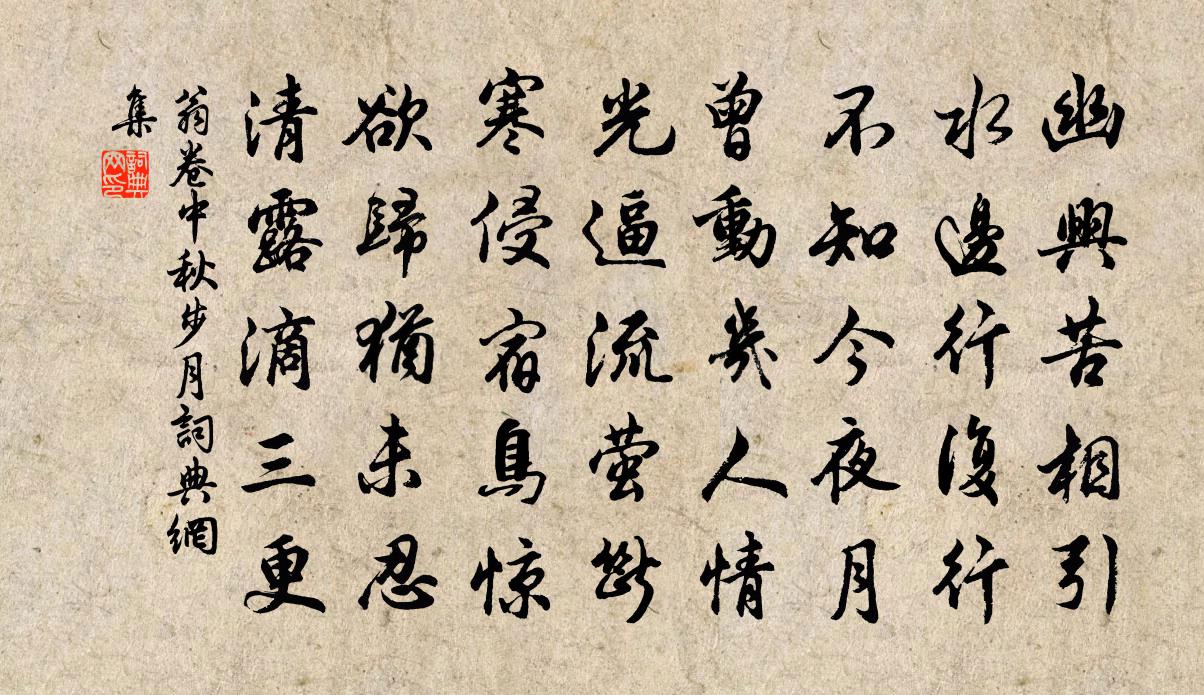 幽興苦相引
水邊行復行
不知今夜月
曾動幾人情
光逼流萤斷
寒侵宿鳥惊
欲歸猶未忍
清露滴三更
翁卷中秋步月詞典網
集
詞典
网印